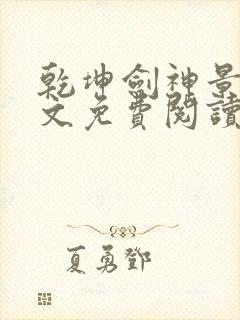 乾坤劍神景
文免費閱讀
夏勇鄧